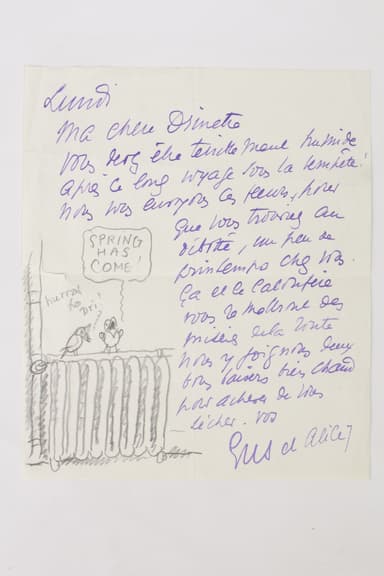 Lundi
Ma chère Drinette
vous devez être terriblement humide
après ce long voyage sous la tempête!
nous vous envoyons ces fleurs, pour
que vous trouviez au
débotté, un peu de
printemps chez vous.
Ça et le calorifère
vous remettront des
misères de la route
nous y joignons deux
gros baisers bien chauds
pour achever de vous
sécher. vos
Gus et Alice
SPRING
HAS
COME!
hurrah
for
Dri!